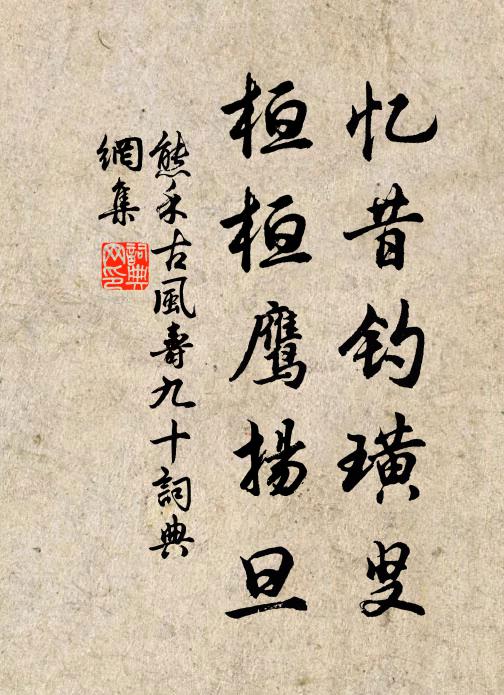 忆昔钓璜叟
桓桓鹰揚旦
熊禾古風壽九十詞典
網集
詞典
网印